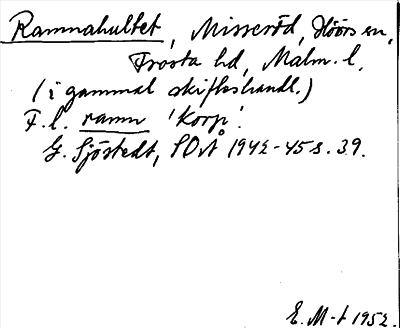 Ramnahultet, Misseröd, Höörs sn,
Frosta hd, Malm. l.
(i gammal skifteshandl.)
F. l. ramn 'korp'.
G. Sjöstedt, SOrtÅ 1942-45 s. 39.
E. M-t 1952.